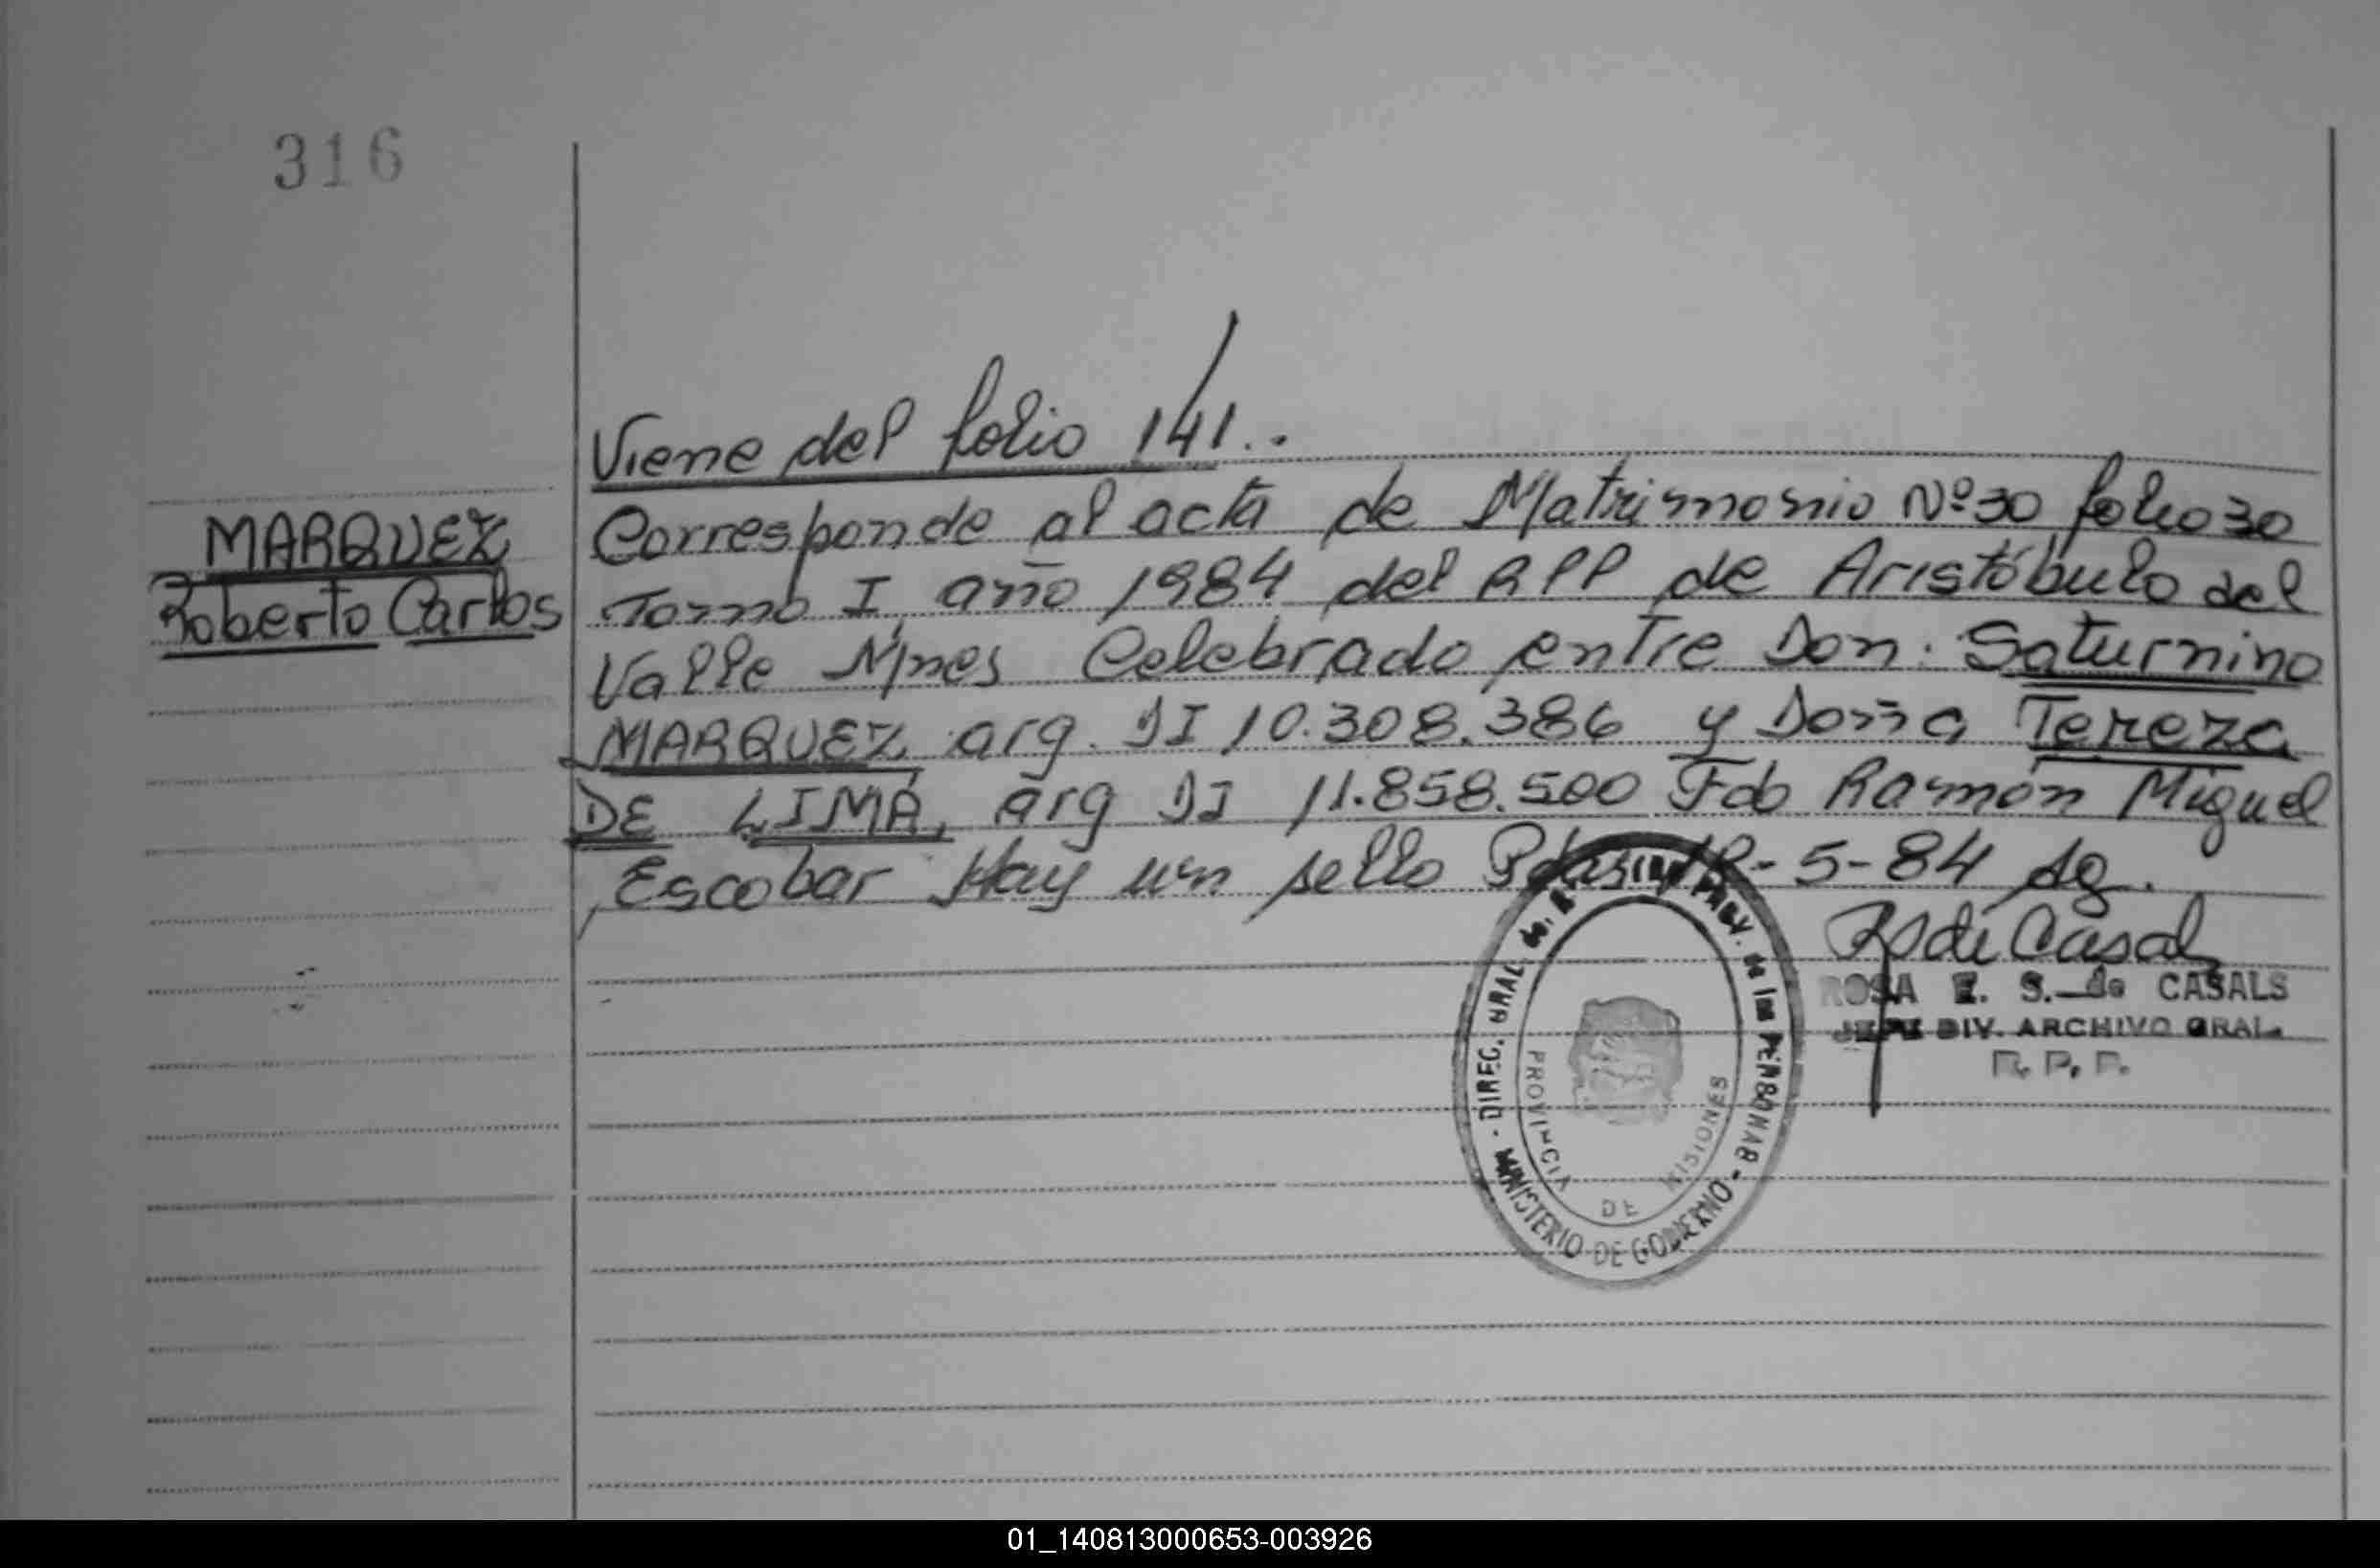 316
Viene del folio 141..
MARQUEZ
Roberto Carlos
Corresponde al acta de Matrimonio Nº 30 folio 30
Tomo I, año 1984 del RPP de Aristóbulo del
Valle Mnes Celebrado entre Don. Saturnino
MARQUEZ arg. DI 10.308.386 y Doña Tereza
DE LIMA, arg DI 11.858.500 Fdo Ramón Miguel
Escobar Hay un sello Pdas -5-84
ROSA E. S. de CASALS
JEFE DIV. ARCHIVO GRAL.
R. P. P.
DIREC. GRAL. de PROV. de las PERSONAS -
MINISTERIO DE GOBIERNO
PROVINCIA DE MISIONES
01_140813000653-003926